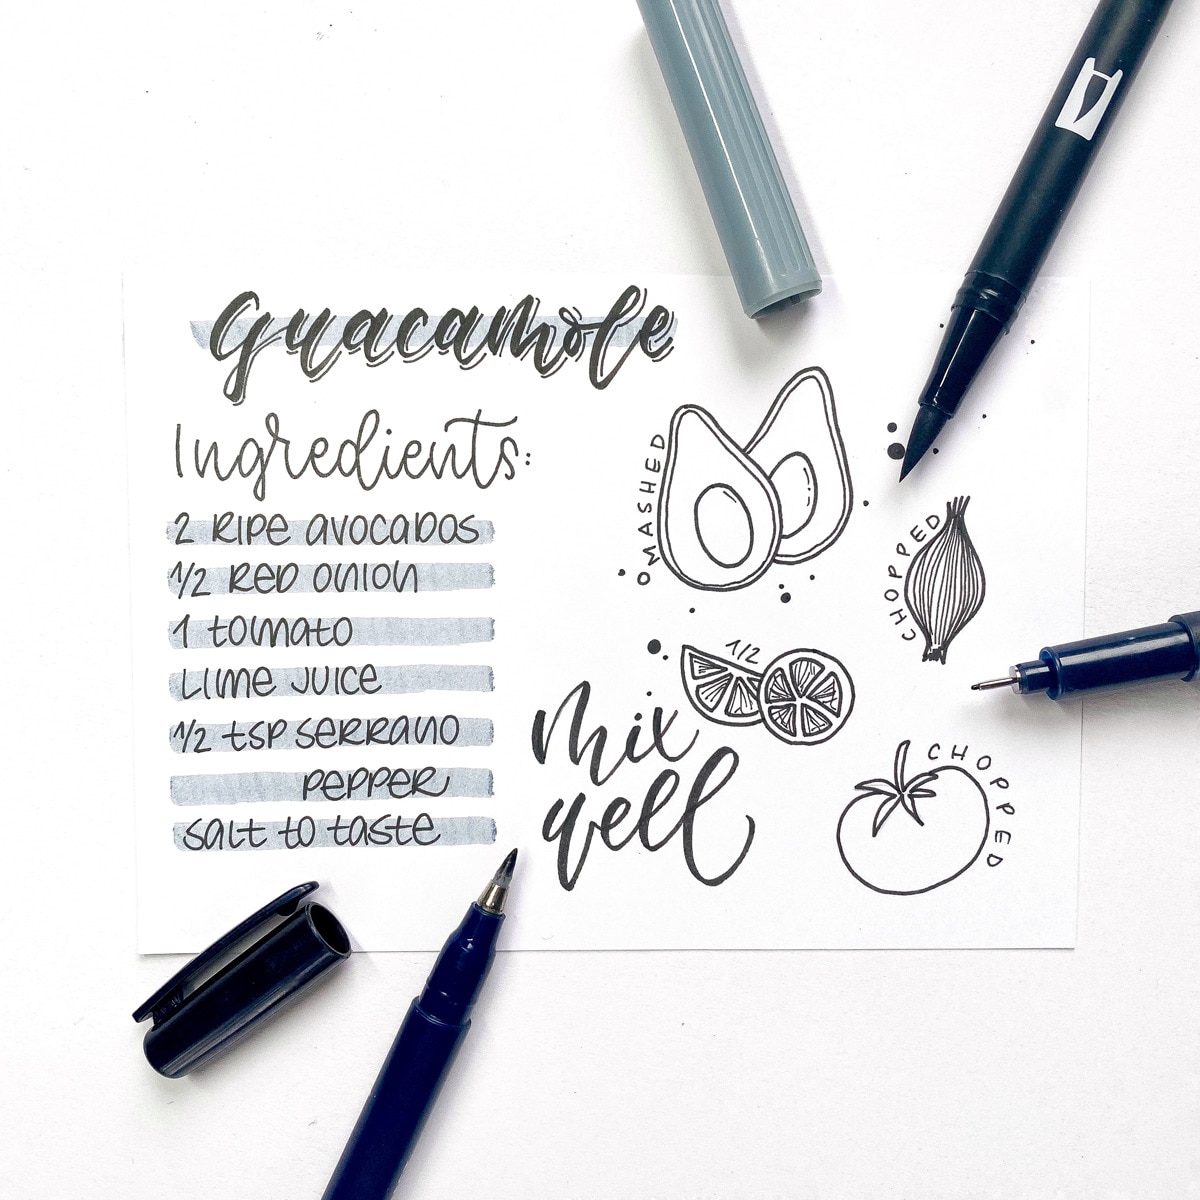 Guacamole
Ingredients:
2 RIPE AVOCADOS
1/2 RED ONION
1 TOMATO
LIME JUICE
1/2 TSP SERRANO
PEPPER
SALT TO TASTE
MASHED
CHOPPED
1/2
mix
well
CHOPPED